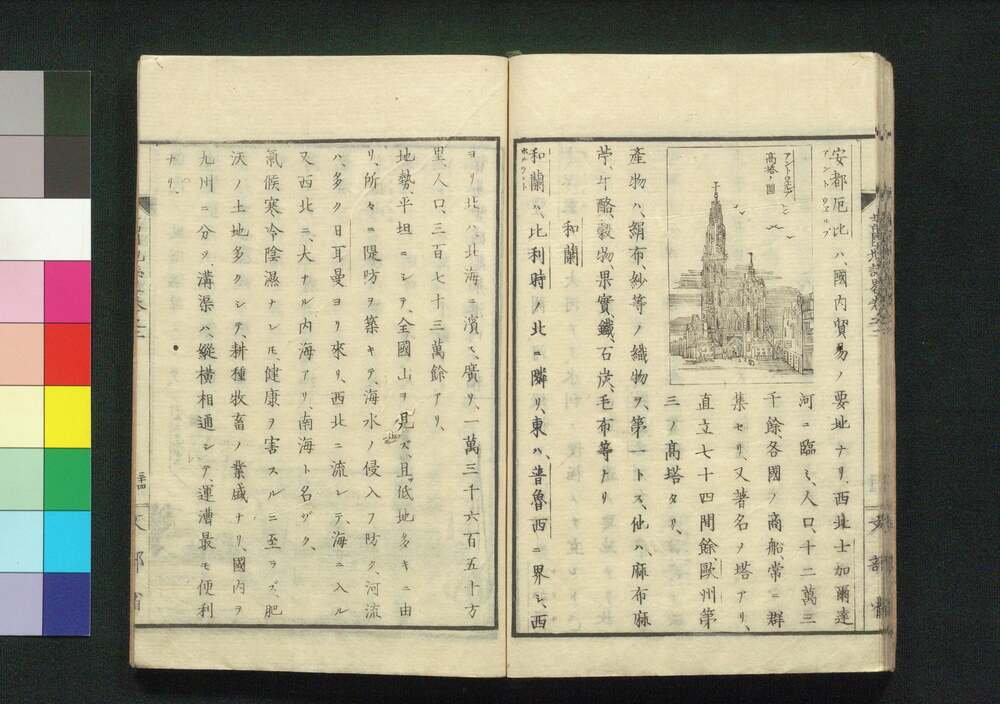 安都厄比ハ、國内貿易ノ要地ナリ、西北士加爾達
アントウエルプ
河ニ臨ミ、人口、十二萬三
千餘、各國ノ商船常ニ群
集セリ、又著名ノ塔アリ、
直立七十四間餘、歐州第
三ノ高塔タリ、
アントウエルプ
高塔ノ圖
產物ハ、絹布、紗等ノ織物ヲ、第一トス、他ハ、麻布、麻
苧、牛酪、穀物、果實、鐵、石炭、毛布等ナリ
和蘭
和蘭ハ、比利時ノ北ニ隣リ、東ハ、普魯西ニ界シ、西
ヨリ北ハ、北海ニ濱ス、廣リ、一萬三千六百五十方
里、人口、三百七十三萬餘アリ、
地勢、平坦ニシテ、全國山ヲ見ズ、且低地多キニ由
リ、所々ニ隄防ヲ築キテ、海水ノ侵入ヲ防ク、河流
ハ、多ク日耳曼ヨリ來リ、西北ニ流レテ、海ニ入ル
又西北ニ、大ナル内海アリ、南海ト名ヅク、
氣候寒冷陰濕ナレ𪜈、健康ヲ害スルニ至ラズ、肥
沃ノ土地多クシテ、耕種牧畜ノ業盛ナリ、國内ヲ
九州ニ分ツ、溝渠ハ、縱横相通シテ、運漕最モ便利
ナリ、
文部省